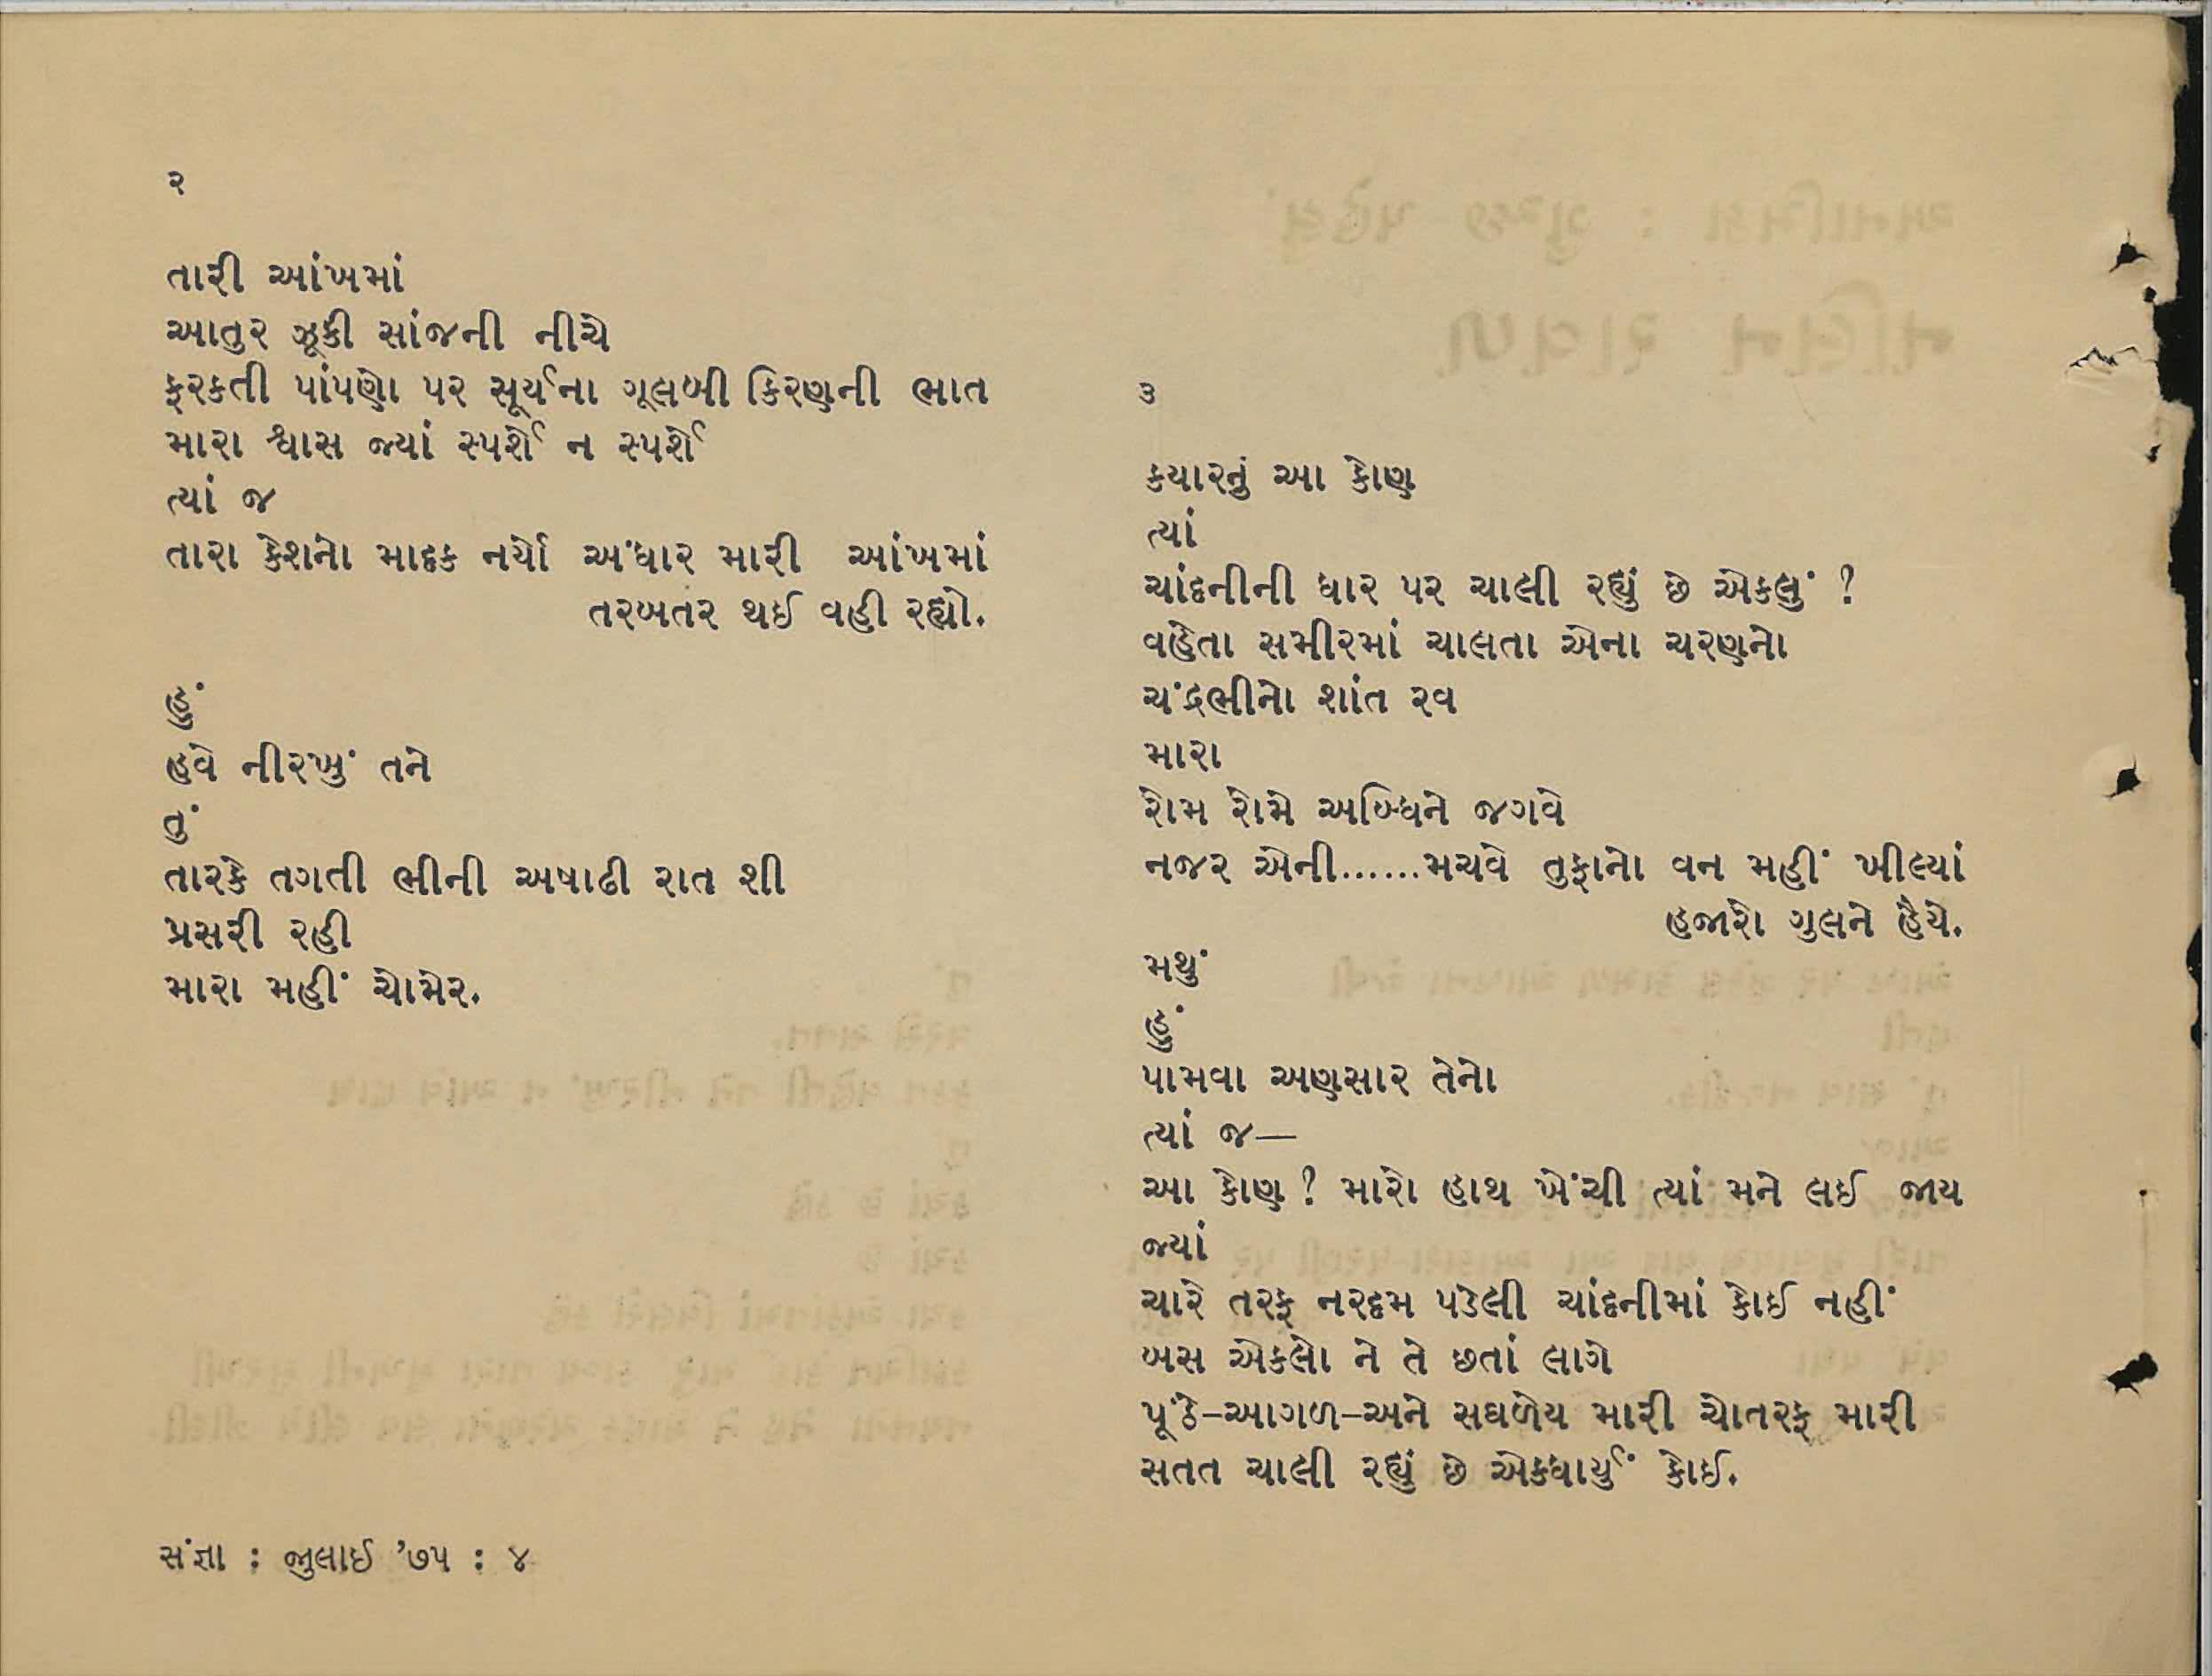 ૨
તારી આંખમાં
આતુર ઝૂકી સાંજની નીચે
ફરકતી પાંપણો પર સૂર્યના ગૂલબી કિરણની ભાત
મારા શ્વાસ જ્યાં સ્પર્શે ન સ્પર્શે
ત્યાં જ
તારા કેશનો માદક નર્યો અંધાર મારી આંખમાં
તરબતર થઈ વહી રહ્યો.
હું
હવે નીરખું તને
તું
તારકે તગતી ભીની અષાઢી રાત શી
પ્રસરી રહી
મારા મહીં ચોમેર.
૩
કયારનું આ કોણ
ત્યાં
ચાંદનીની ધાર પર ચાલી રહ્યું છે એકલું ?
વહેતા સમીરમાં ચાલતા એના ચરણનો
ચંદ્રભીનો શાંત રવ
મારા
રોમ રોમે અબ્ધિને જગવે
નજર એની......મચવે તુફાનો વન મહીં ખીલ્યાં
હજારો ગુલને હૈયે.
મથું
હું
પામવા અણસાર તેનો
ત્યાં જ—
આ કોણ ? મારો હાથ ખેંચી ત્યાં મને લઈ જાય
જ્યાં
ચારે તરફ નરદમ પડેલી ચાંદનીમાં કોઈ નહીં
બસ એકલો ને તે છતાં લાગે
પૂંઠે–આગળ–અને સઘળેય મારી ચોતરફ મારી
સતત ચાલી રહ્યું છે એકધાર્યું કોઈ.
સંજ્ઞા : જુલાઈ ’૭૫ : ૪